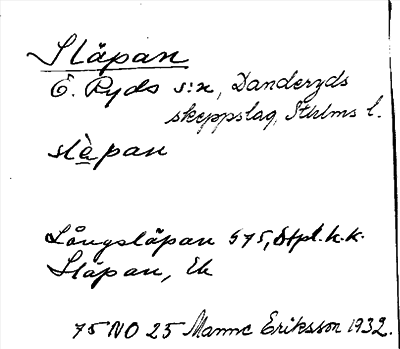 Släpan
Ö. Ryds s:n, Danderyds
skeppslag, Sthlms l.
slèpan
Långsläpan G 75, Stpl. h.k.
Släpan, Ek
75 NO 25 Manne Eriksson 1932.